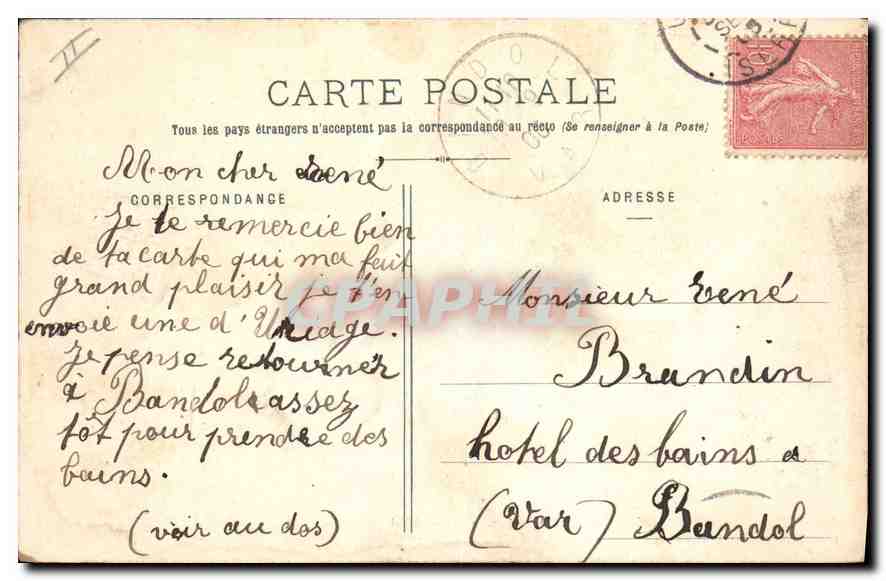 II
CARTE POSTALE
Tous les pays étrangers n'acceptent pas la correspondance au recto (Se renseigner à la Poste)
CORRESPONDANCE
Mon cher René
Je te remercie bien
de ta carte qui ma fait
grand plaisir je t'en
envoie une d'Uriage.
Je pense retourner
à Bandol assez
tôt pour prendre des
bains.
(voir au dos)
ADRESSE
Monsieur René
Brandin
hotel des bains a
(Var) Bandol
CPAPHIL
BANDOL
VAR
POSTES
10